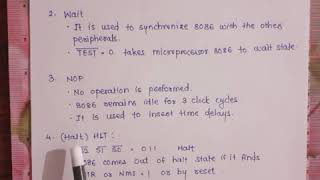 2. Wait
• It is used to synchronize 8086 with the other
peripherals.
• TEST = 0 takes microprocessor 8086 to wait state.
3. NOP
• No operation is performed.
• 8086 remains idle for 3 clock cycles
• It is used to insert time delays.
4. (Halt) HLT :
S1 S0 = 011 Halt
8086 comes out of halt state if it finds
NMI = 1 or by reset